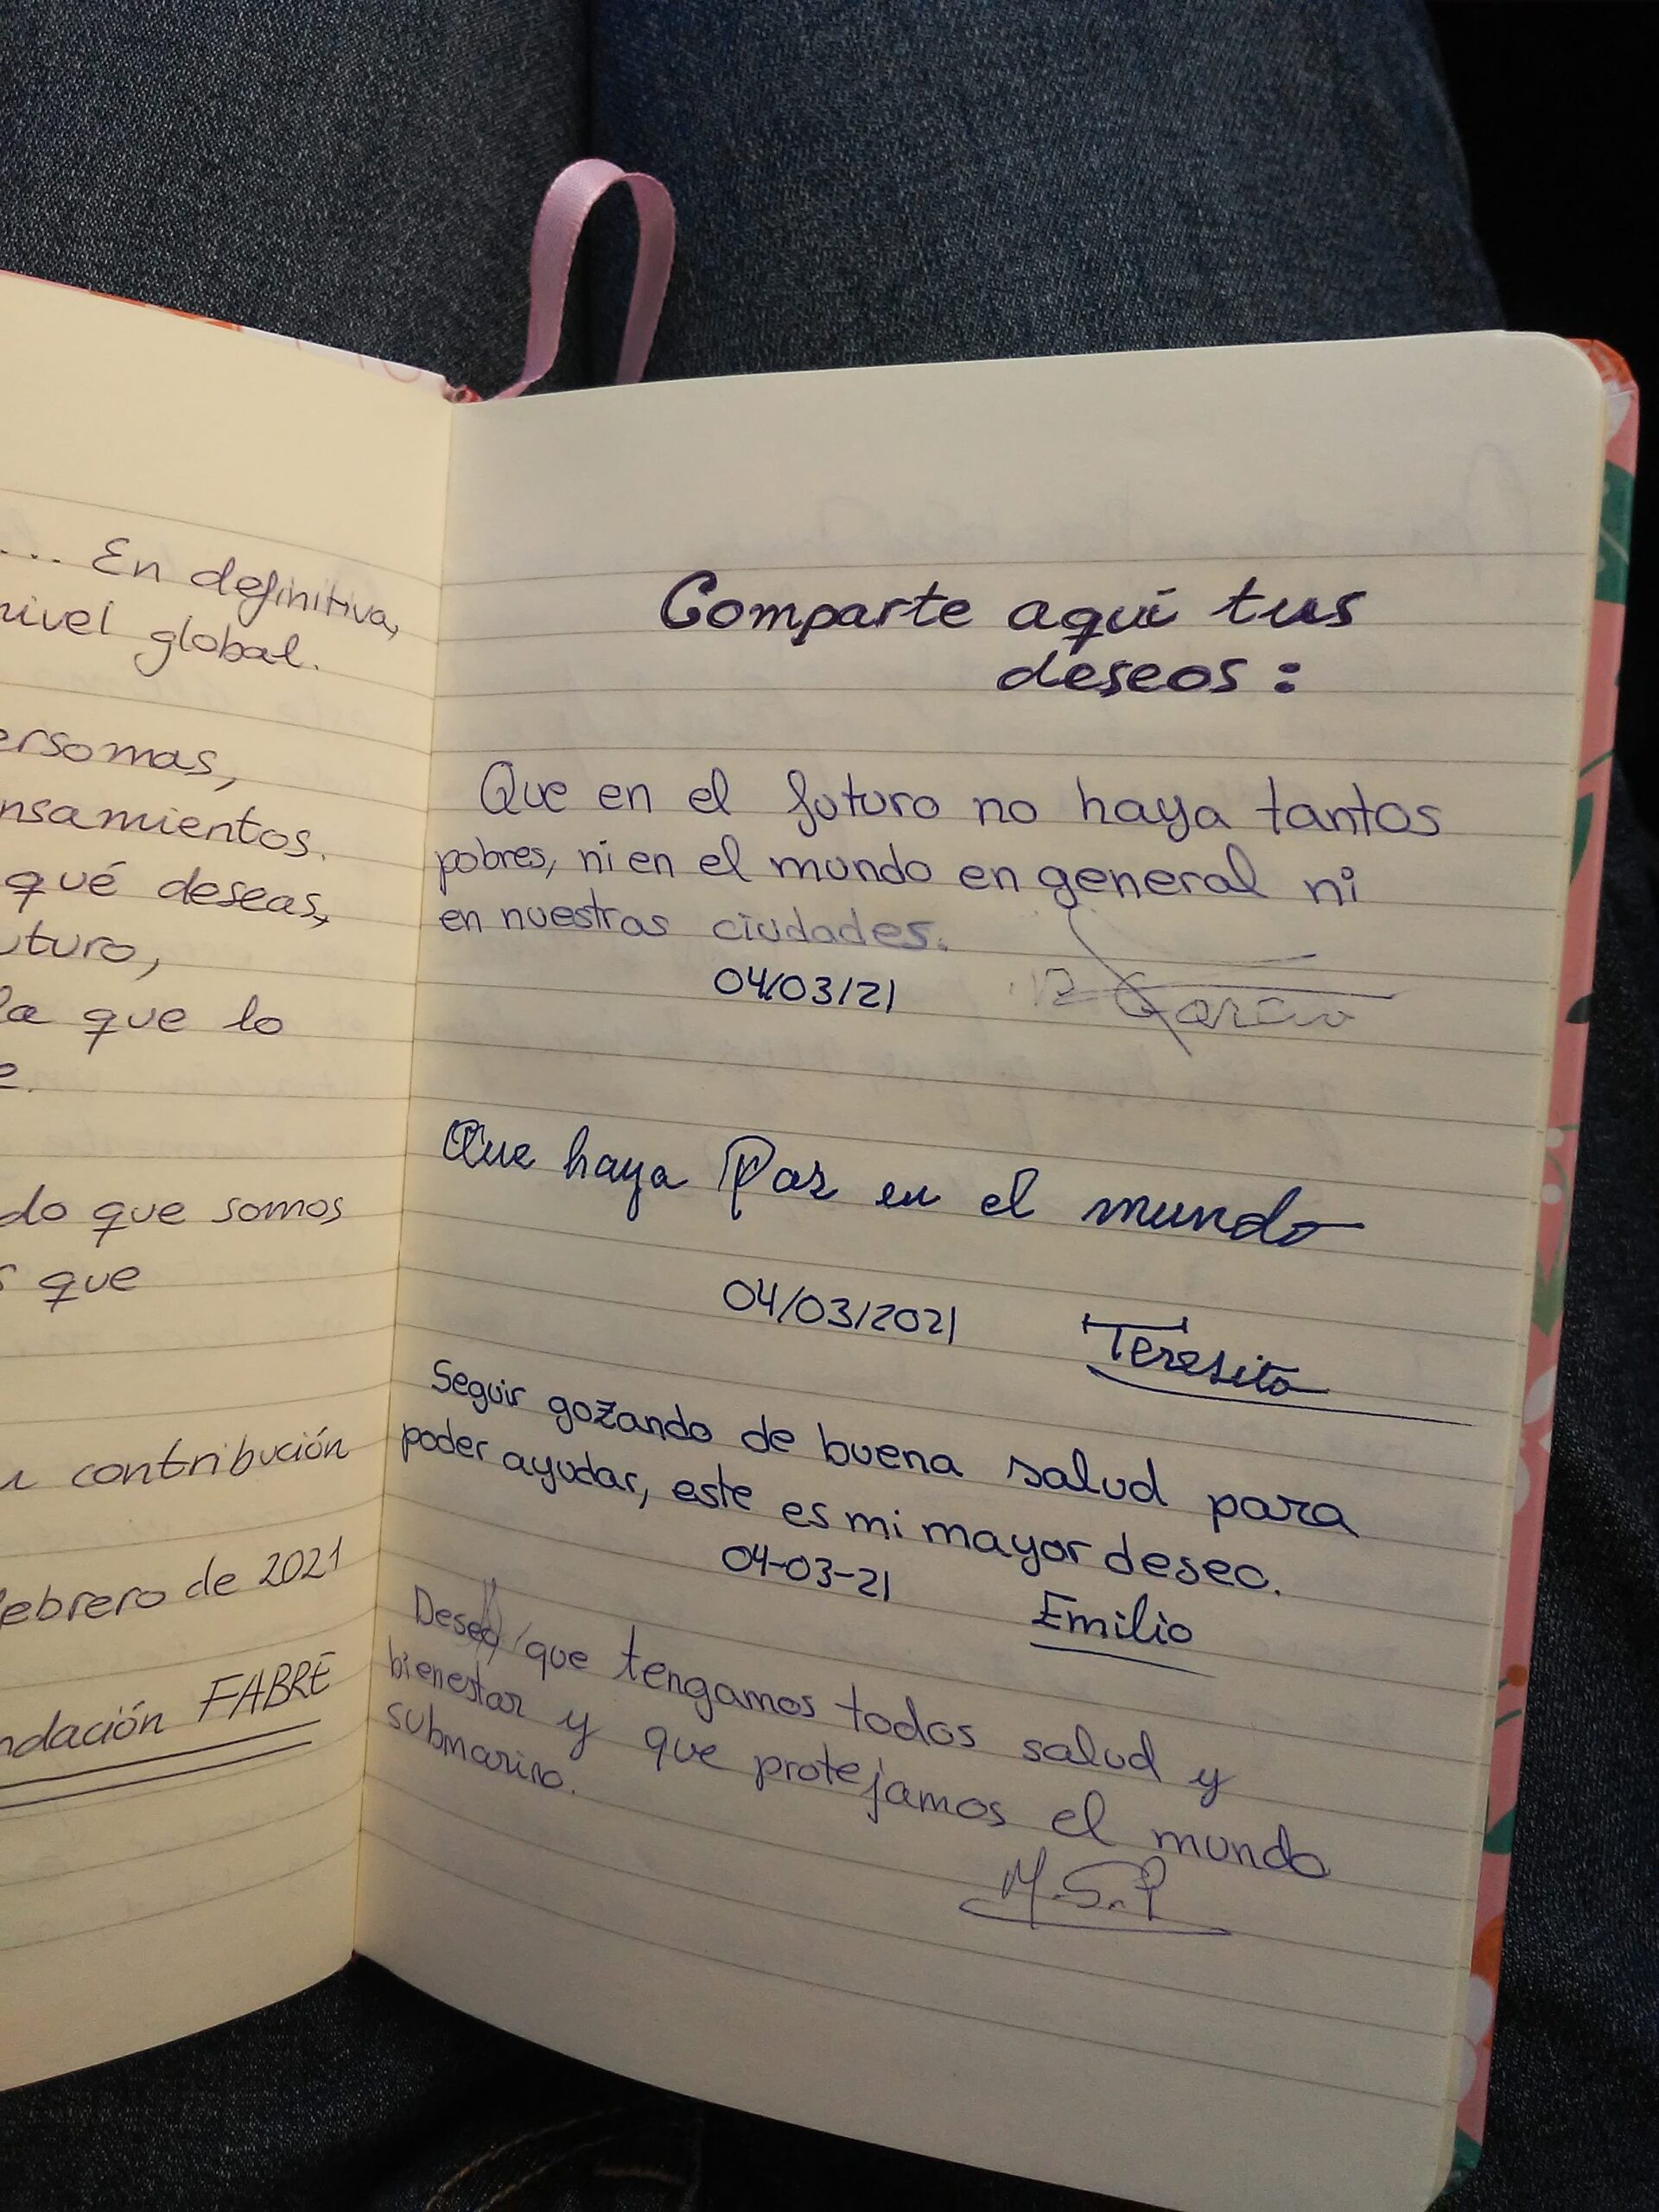 ... En definitiva,
nivel global.
ersonas,
nsamientos.
qué deseas,
uturo,
la que lo
e.
do que somos
s que
contribución
febrero de 2021
ndación FABRE
Comparte aquí tus
deseos:
Que en el futuro no haya tantos
pobres, ni en el mundo en general ni
en nuestras ciudades.
04/03/21 García
Que haya Paz en el mundo
04/03/2021 Teresita
Seguir gozando de buena salud para
poder ayudar, este es mi mayor deseo.
04-03-21
Emilio
Deseo que tengamos todos salud y
bienestar y que protejamos el mundo
submarino.
M.S.P